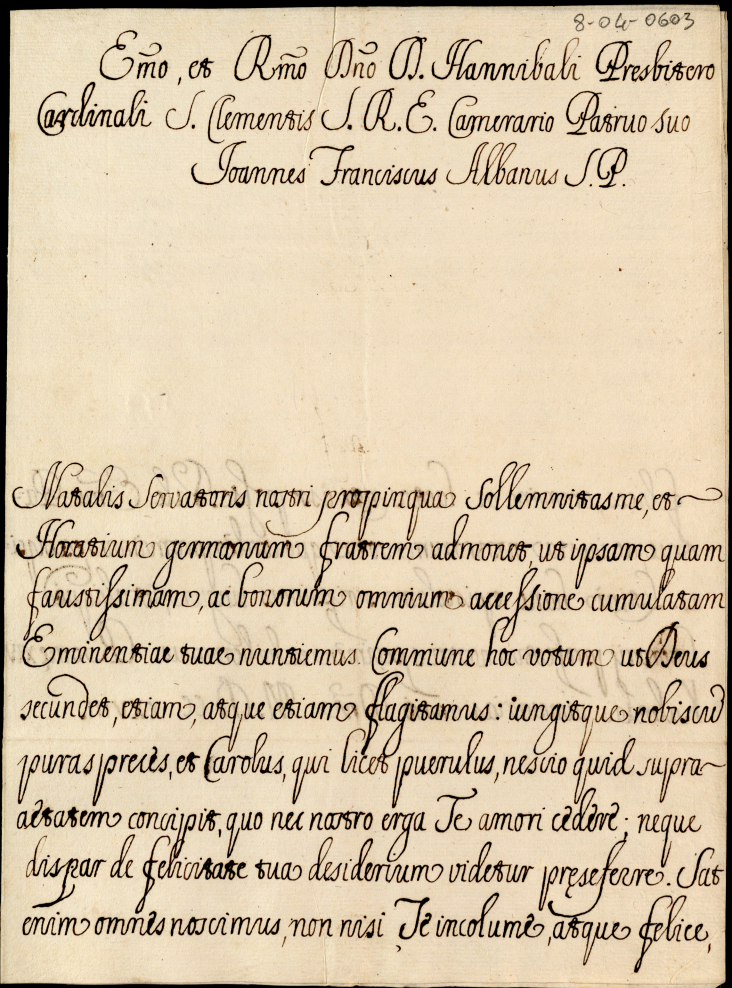 8-04-0603
Em̃o, et Rm̃o Dño D. Hannibali Presbitero
Cardinali S. Clementis S. R. E. Camerario Patruo suo
Joannes Franciscus Albanus S. P.
Natalis Servatoris nostri propinqua sollemnitas me, et
Horatium germanum fratrem admonet, ut ipsam quam
faustissimam, ac bonorum omnium accessione cumulatam
Eminentiae tuae nuntiemus. Commune hoc votum ut Deus
secundet, etiam, atque etiam flagitamus: iungitque nobiscũ
puras preces, et Carolus, qui licet puerulus, nescio quid supra
aetatem concipit, quo nec nostro erga Te amori cedere; neque
dispar de felicitate tua desiderium videtur pręseferre. Sat
enim omnes noscimus, non nisi Te incolumẽ, atque felicẽ,